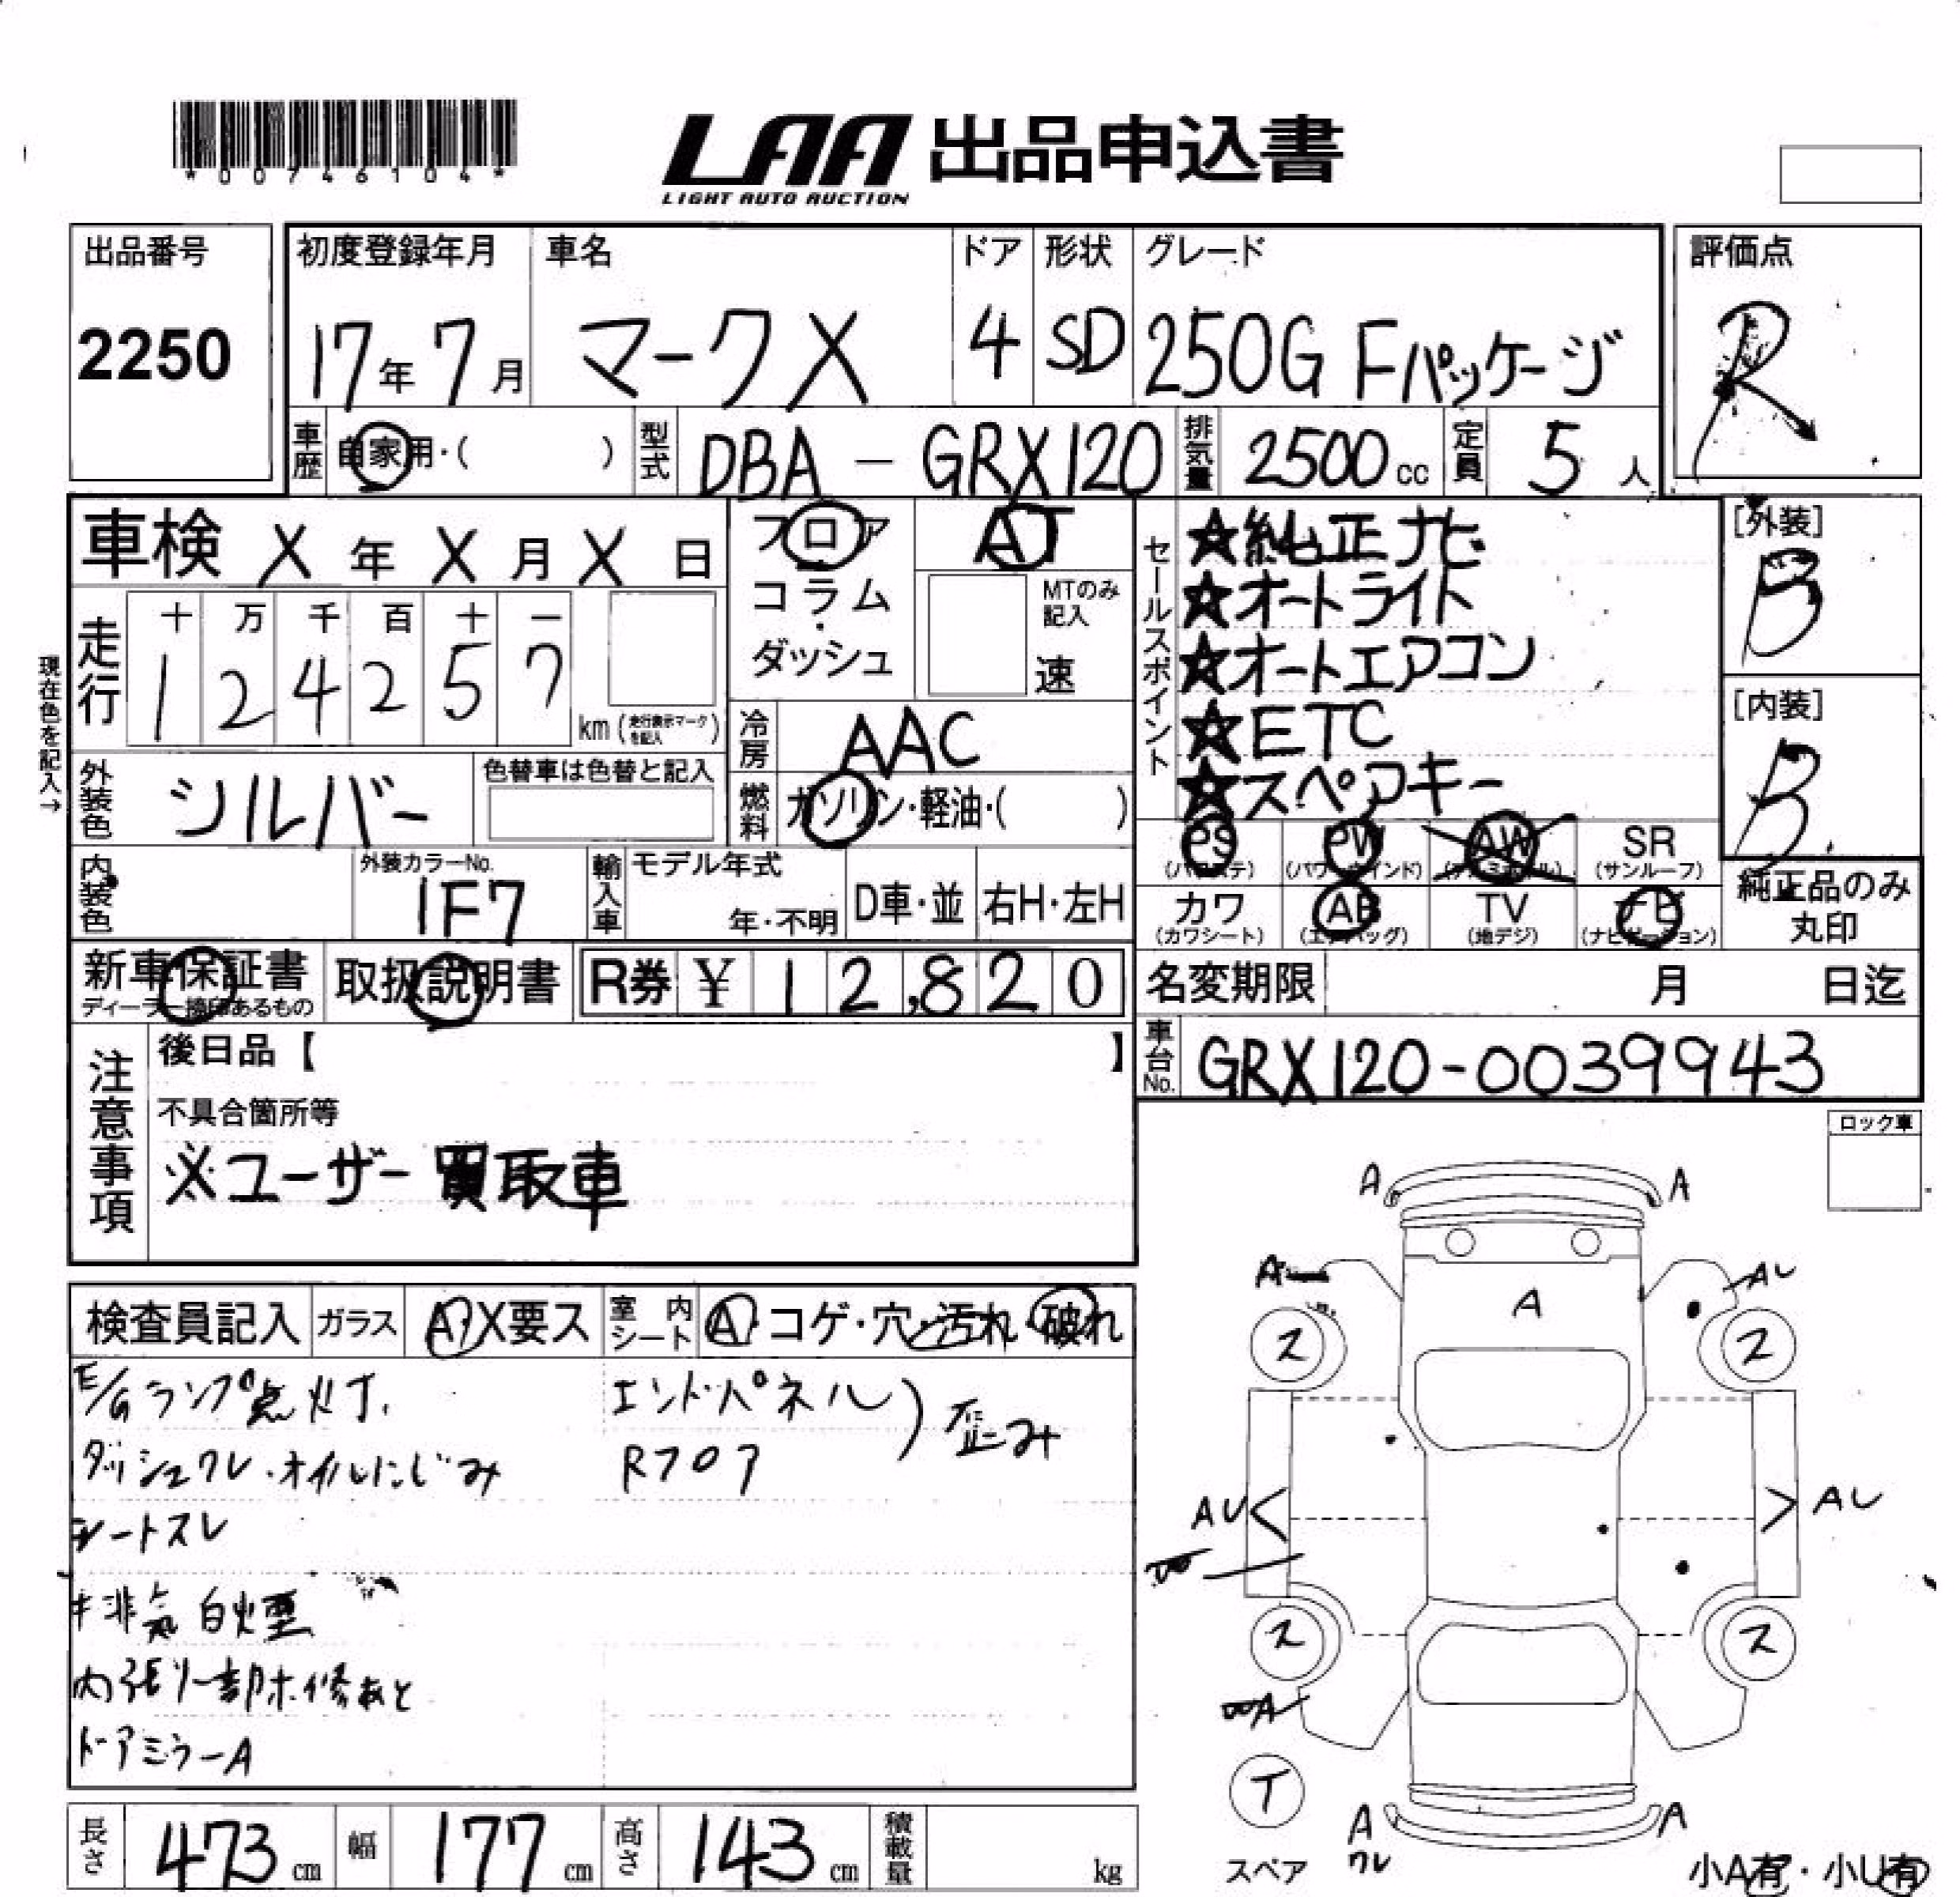 *00746104*
LAA 出品申込書
LIGHT AUTO AUCTION
出品番号
2250
初度登録年月
17年7月
車名
マークX
ドア
4
形状
SD
グレード
250G Fパッケージ
評価点
R
車歴
自家用・( )
型式
DBA - GRX120
排気量
2500cc
定員
5人
車検 X年X月X日
フロア
コラム・
ダッシュ
AT
MTのみ
記入
速
セールスポイント
☆純正ナビ
☆オートライト
☆オートエアコン
☆ETC
☆スペアキー
[外装]
B
[内装]
B
現在色を記入→
走行
十 万 千 百 十 一
1 2 4 2 5 7
km(走行表示マークを記入)
冷房
AAC
外装色
シルバー
色替車は色替と記入
燃料
ガソリン・軽油・( )
PS
(パワステ)
PW
(パワーウインド)
AW
(アルミホイール)
SR
(サンルーフ)
カワ
(カワシート)
AB
(エアバッグ)
TV
(地デジ)
ナビ
(ナビゲーション)
純正品のみ
丸印
内装色
外装カラーNo.
1F7
輸入車
モデル年式
年・不明
D車・並
右H・左H
新車保証書
ディーラー捺印あるもの
取扱説明書
R券 ¥ 12,820
名変期限 月 日迄
車台No.
GRX120-0039943
注意事項
後日品【 】
不具合箇所等
※ユーザー買取車
ロック車
検査員記入
ガラス
A・X要ス
室内シート
A・コゲ・穴・汚れ・破れ
E/Gランプ点灯.
ダッシュワレ・オイルにじみ
シートスレ
排気白煙
内張り一部ホ修あと
ドアミラーA
エンドパネル
Rフロア
歪み
A
A
A
AU
A
ス
ス
AU
AU
ス
ス
A
T
スペア
A
A
ワレ
小A有・小U有
長さ
473cm
幅
177cm
高さ
143cm
積載量
kg